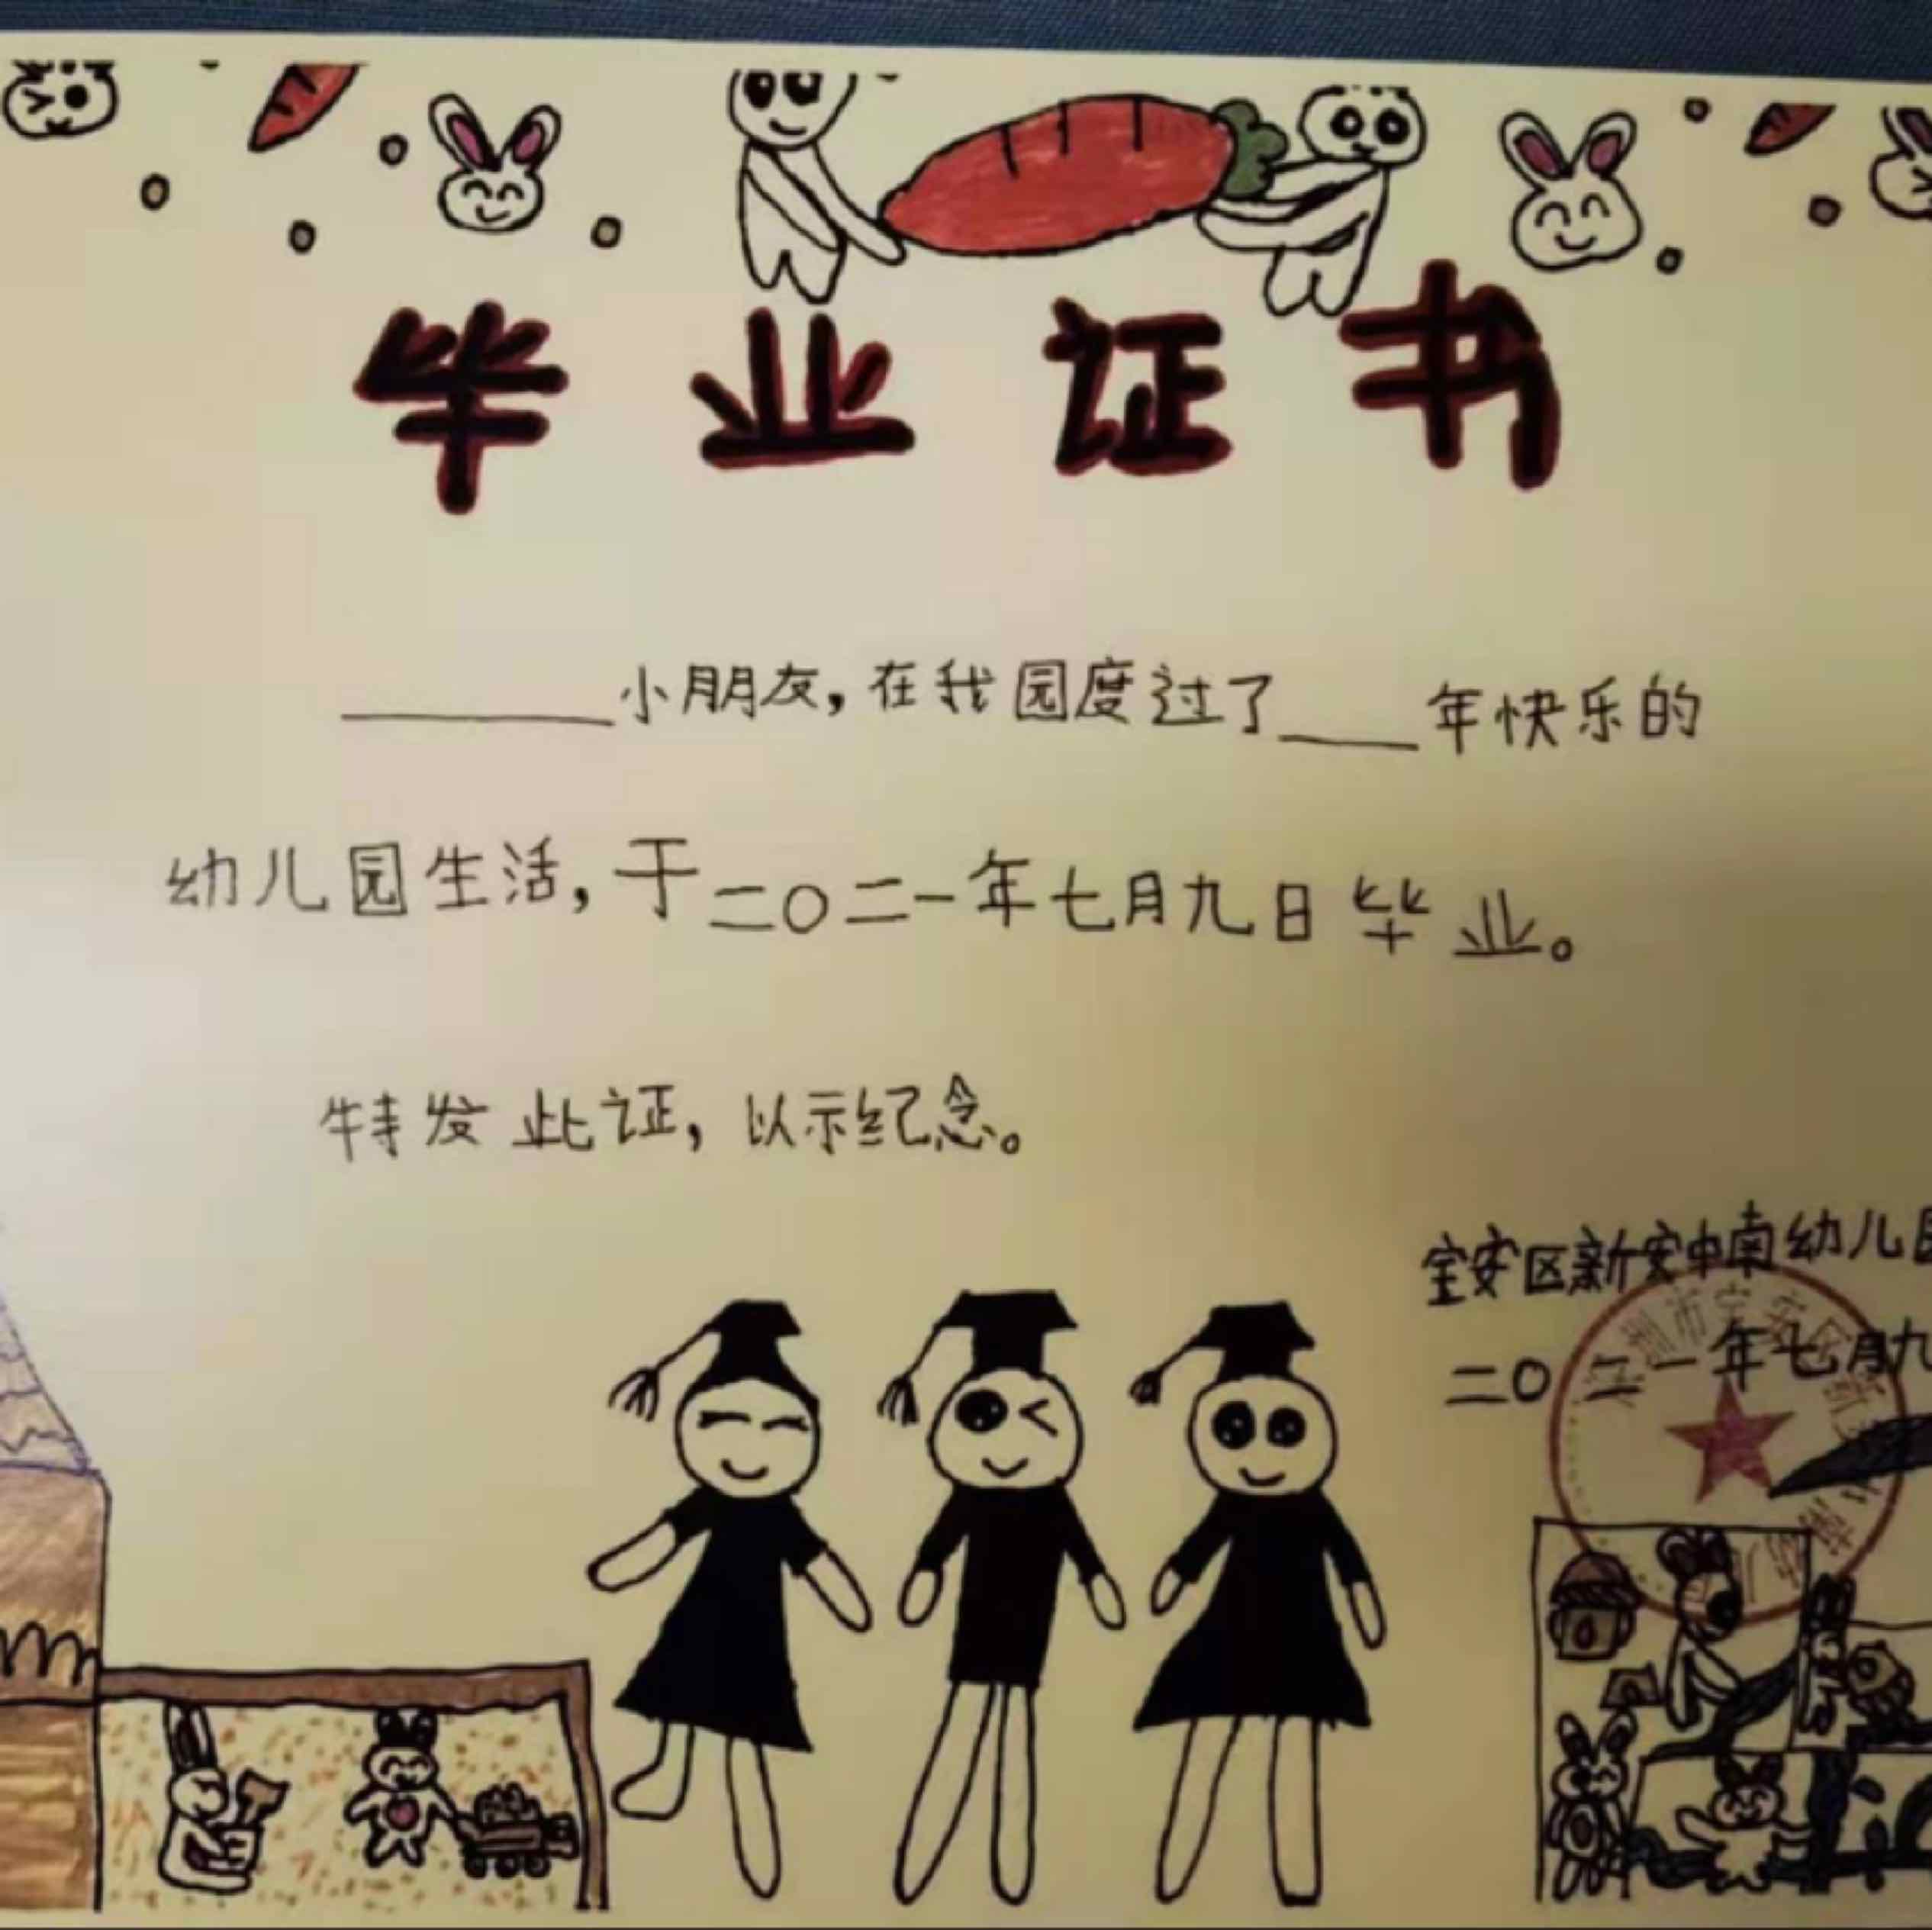 毕业证书
______小朋友，在我园度过了___年快乐的
幼儿园生活，于二〇二一年七月九日毕业。
特发此证，以示纪念。
宝安区新安中南幼儿园
二〇二一年七月九
圳市宝安区新安中南